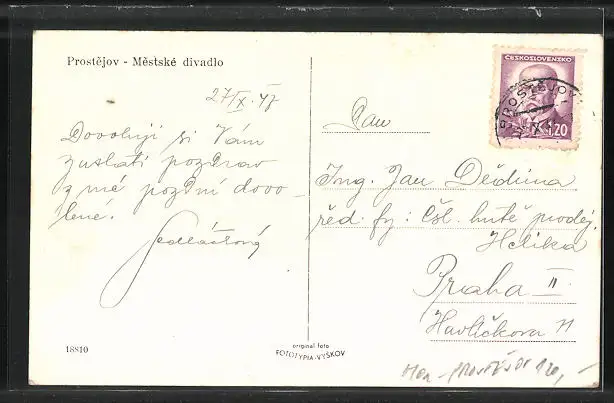 Prostějov - Městské divadlo
27/X. 47
Dovoluji si Vám
zaslati pozdrav
z mé pozdní dovo-
lené.
Sedláčková
18810
original foto
FOTOTYPIA-VYŠKOV
ČESKOSLOVENSKO
1.20
PROSTĚJOV
Pan
Ing. Jan Dědina
řed. fy: Čsl. hutě prodej.
Praha II
Havlíčkova 11
PROSTĚJOV 120,-